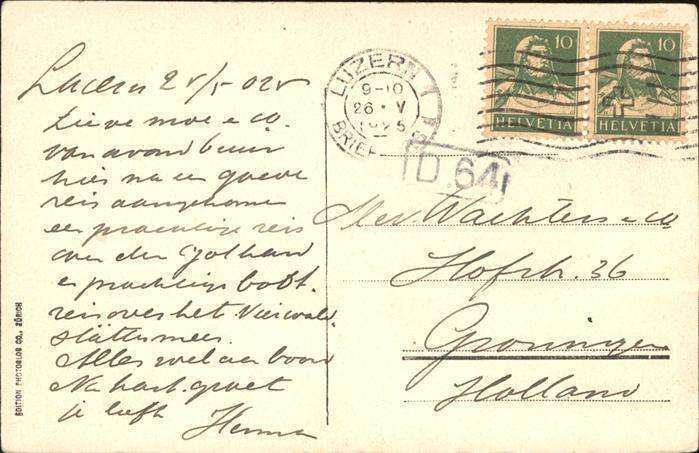 Luzern 25/5 025
Lieve moe e co.
van avond kwir
hier na een goede
reis aangekomen
een prachtige reis
over den Gotthard
en prachtige boot-
reis over het Vierwald-
stättermeer.
Alles wel aan boord
Na hart. groet
je liefh
Herman
EDITION PHOTOGLOB CO., ZÜRICH
LUZERN 1
9-10
26. V
1925
BRIEF
10
HELVETIA
10
HELVETIA
D. 64
Mev. Wachters e co
Hofstr. 36
Groningen
Holland